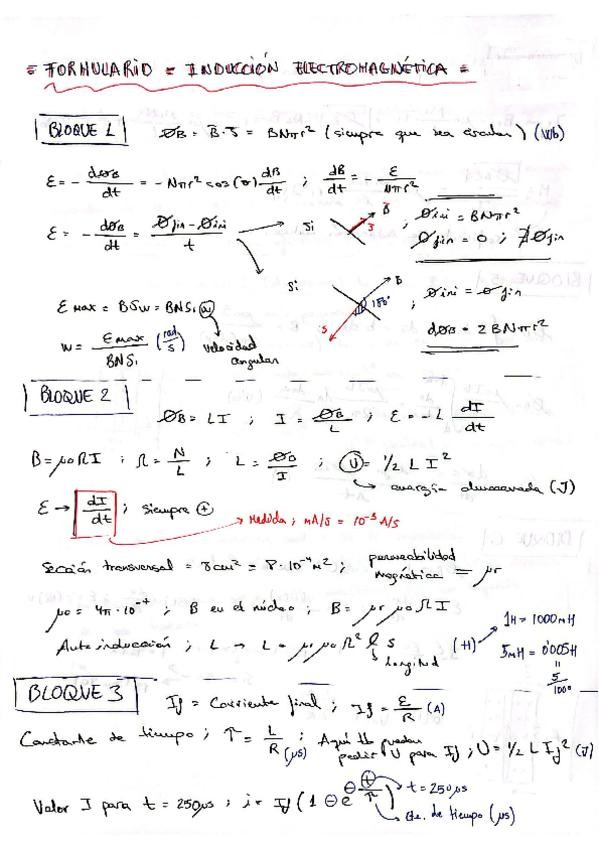 = FORMULARIO = INDUCCIÓN ELECTROMAGNÉTICA =
BLOQUE 1 ØB = B·S = BNπr² (siempre que sea circular) (Wb)
ε = - dØB/dt = -Nπr² cos(θ) dB/dt ; dB/dt = - ε/Nπr²
ε = - dØB/dt = Øfin-Øini/t → Si B S ; Øini = BNπr²
Øfin = 0 ; ∄Øfin
Si B 180° S ; Øini = Øfin
dØB = 2BNπr²
ε max = BSw = BNS₁ω
w = εmax/BNS₁ (rad/s) velocidad angular
BLOQUE 2
ØB = LI ; I = ØB/L ; ε = -L dI/dt
B = μoΩI ; Ω = N/L ; L = ØB/I ; U = 1/2 L I²
energía almacenada (J)
ε → dI/dt ; siempre +
→ Medida ; mA/s = 10⁻³ A/s
Sección transversal = 8cm² = 8·10⁻⁴m² ; permeabilidad magnética = μr
μo = 4π·10⁻⁷ ; B en el núcleo ; B = μr μo Ω I
Autoinducción ; L → L = μr μo Ω² l S (H)
longitud
1H = 1000mH
5mH = 0'005H
=
5/1000
BLOQUE 3 If = Corriente final ; If = ε/R (A)
Constante de tiempo ; τ = L/R (μs) ; Aquí te pueden pedir U para If ; U = 1/2 L If² (J)
Valor I para t = 250μs ; i = If (1 - e^-t/τ) → t = 250μs
→ Cte. de tiempo (μs)